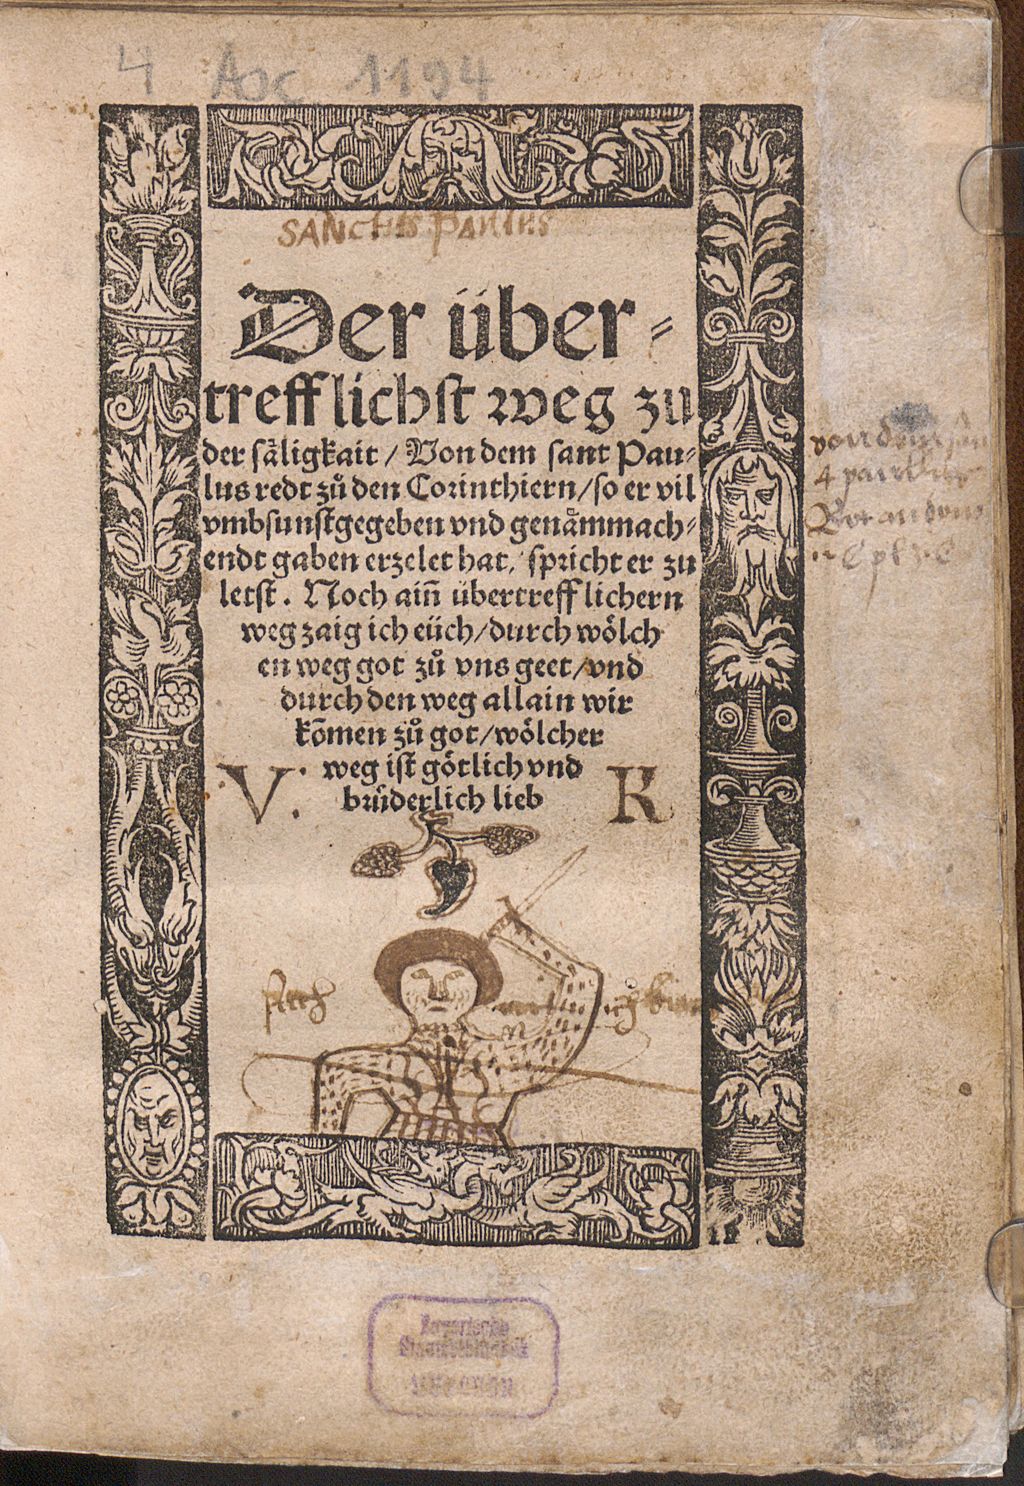 4 Asc. 1194
SANCTUS PAULUS
Der über⸗
trefflichst weg zu
der säligkait / Von dem sant Pau⸗
lus redt zů den Corinthiern / so er vil
vmbsunstgegeben vnd genämmach⸗
endt gaben erzelet hat, spricht er zu
letst. Noch ain̄ übertrefflichern
weg zaig ich eüch / durch wölch
en weg got zů vns geet / vnd
durch den weg allain wir
kōmen zů got / wölcher
weg ist götlich vnd
brůderlich lieb
V. R
Bayerische
Staatsbibliothek
MÜNCHEN